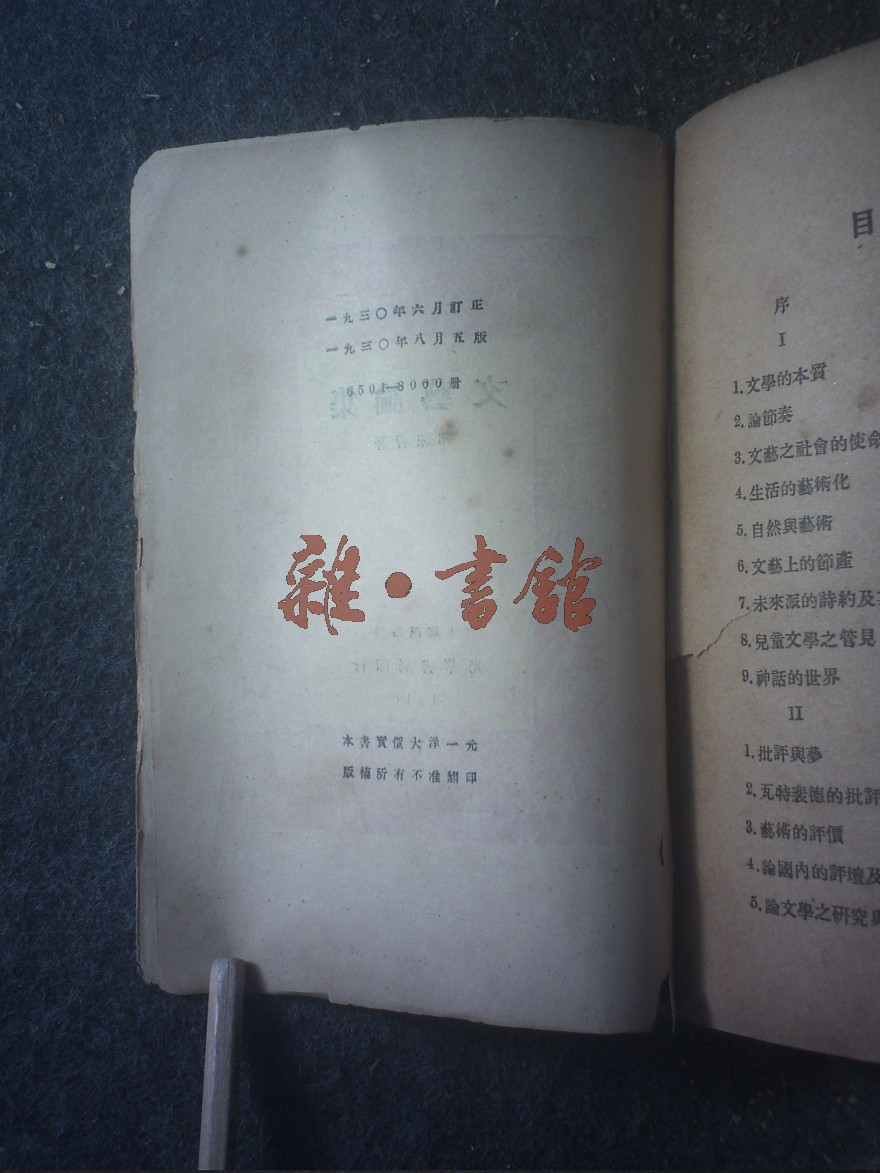 一九三〇年六月訂正
一九三〇年八月五版
6501—8000册
雜·書館
本書實價大洋一元
版權所有不准翻印
目
序
I
1.文學的本質
2.論節奏
3.文藝之社會的使命
4.生活的藝術化
5.自然與藝術
6.文藝上的節產
7.未來派的詩約及
8.兒童文學之管見
9.神話的世界
II
1.批評與夢
2.瓦特裴德的批評
3.藝術的評價
4.論國內的評壇及
5.論文學之研究與